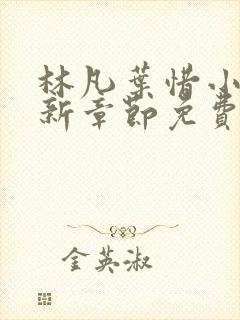 林凡葉惜小
新章節免費
金英淑